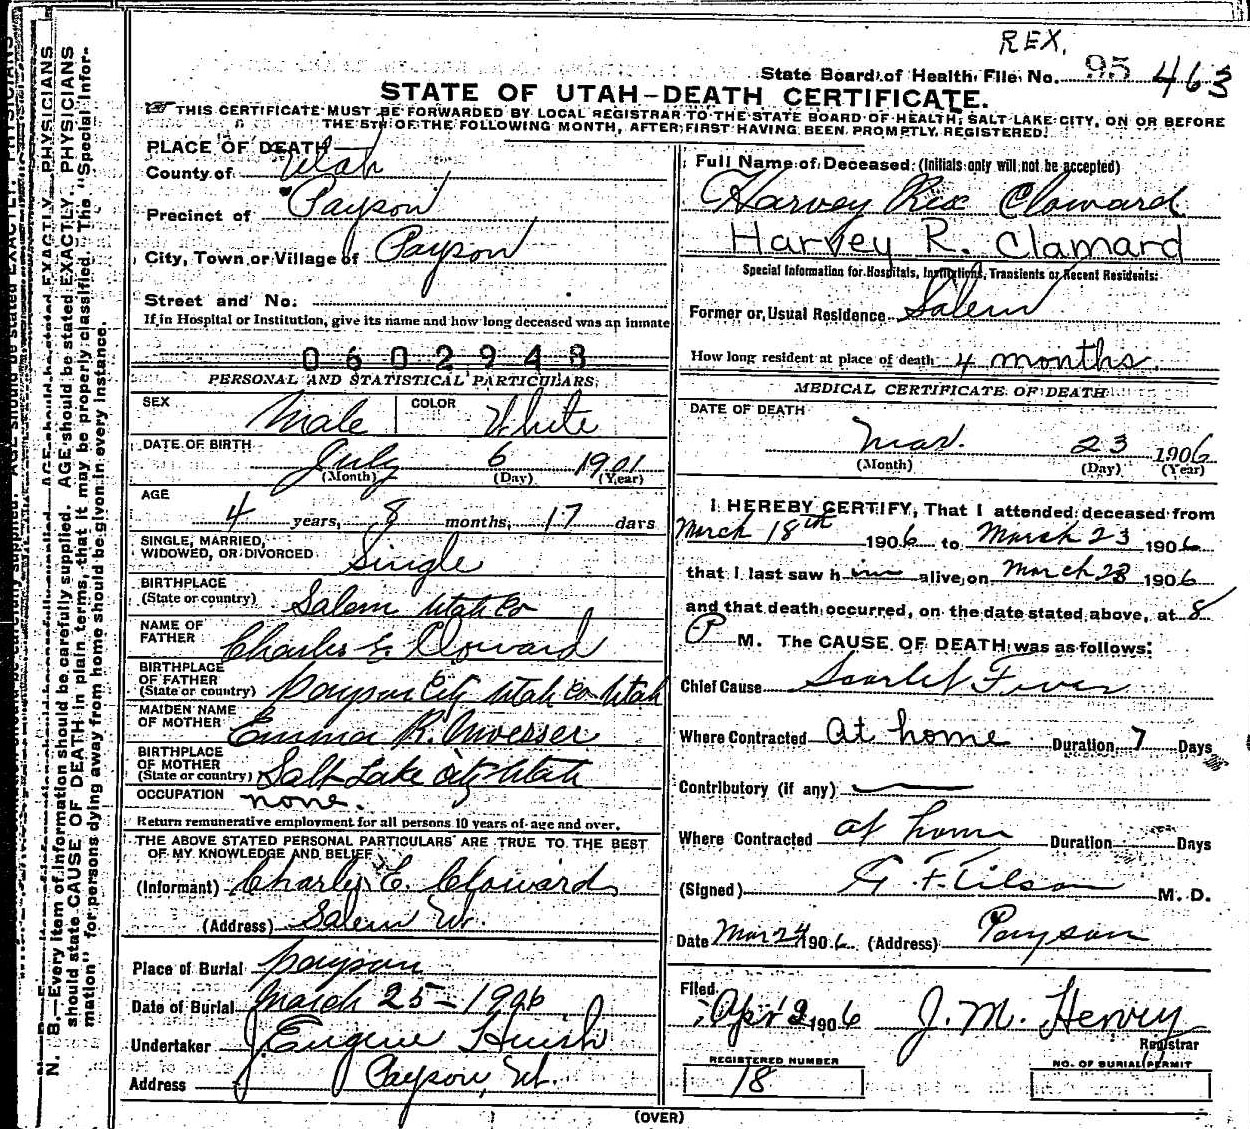 REX.
State Board of Health File No. 95 463
STATE OF UTAH—DEATH CERTIFICATE.
THIS CERTIFICATE MUST BE FORWARDED BY LOCAL REGISTRAR TO THE STATE BOARD OF HEALTH, SALT LAKE CITY, ON OR BEFORE
THE 5TH OF THE FOLLOWING MONTH, AFTER FIRST HAVING BEEN PROMPTLY REGISTERED.
PLACE OF DEATH
County of Utah
Precinct of Payson
City, Town or Village of Payson
Street and No.
If in Hospital or Institution, give its name and how long deceased was an inmate
0602943
PERSONAL AND STATISTICAL PARTICULARS
SEX Male COLOR White
DATE OF BIRTH
July 6 1901
(Month) (Day) (Year)
AGE
4 years, 8 months, 17 days
SINGLE, MARRIED,
WIDOWED, OR DIVORCED Single
BIRTHPLACE
(State or country) Salem Utah Co
NAME OF
FATHER Charles E Cloward
BIRTHPLACE
OF FATHER
(State or country) Payson City Utah Co Utah
MAIDEN NAME
OF MOTHER Emma R.
BIRTHPLACE
OF MOTHER
(State or country) Salt Lake City Utah
OCCUPATION none.
Return remunerative employment for all persons 10 years of age and over.
THE ABOVE STATED PERSONAL PARTICULARS ARE TRUE TO THE BEST
OF MY KNOWLEDGE AND BELIEF
(Informant) Charles E. Cloward
(Address) Salem Ut.
Place of Burial Payson
Date of Burial March 25 - 1906
Undertaker J. Eugene Huish
Address Payson, Ut.
Full Name of Deceased: (Initials only will not be accepted)
Harvey Rex Cloward
Harvey R. Clamard
Special Information for Hospitals, Institutions, Transients or Recent Residents:
Former or Usual Residence Salem
How long resident at place of death 4 months.
MEDICAL CERTIFICATE OF DEATH
DATE OF DEATH
Mar. 23 1906
(Month) (Day) (Year)
I HEREBY CERTIFY, That I attended deceased from
March 18th 1906 to March 23 1906
that I last saw him alive on March 23 1906
and that death occurred, on the date stated above, at 8
P M. The CAUSE OF DEATH was as follows:
Chief Cause Scarlet Fever
Where Contracted At home Duration 7 Days
Contributory (if any) —
Where Contracted at home Duration Days
(Signed) G. F. Tilson M. D.
Date Mar 24 1906 (Address) Payson
Filed
Apr 2 1906 J. M. Henry
Registrar
REGISTERED NUMBER
18
NO. OF BURIAL PERMIT
(OVER)
N. B.—Every item of information should be carefully supplied. AGE should be stated EXACTLY. PHYSICIANS
should state CAUSE OF DEATH in plain terms, that it may be properly classified. The "Special Infor-
mation" for persons dying away from home should be given in every instance.